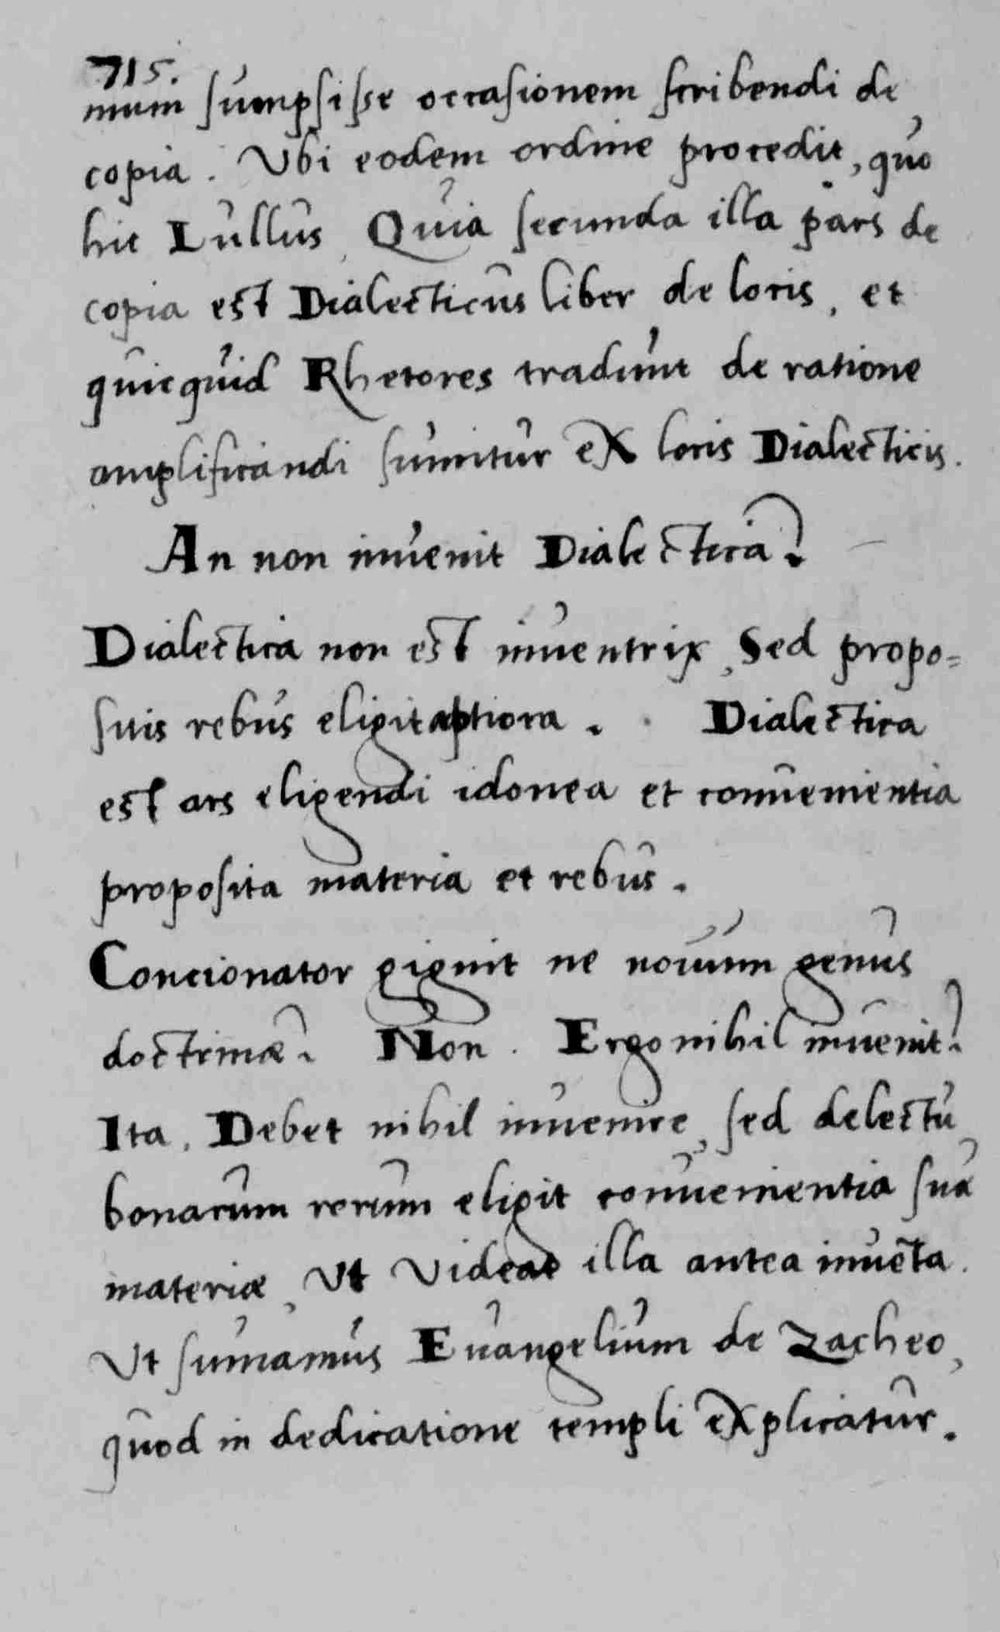 715.
mum sumpsisse occasionem scribendi de
copia. Vbi eodem ordine procedit, quo
hic Lullus, Quia secunda illa pars de
copia est Dialecticus liber de locis, et
quicquid Rhetores tradunt de ratione
amplificandi sumitur eX locis Dialecticis.
An non inuenit Dialectica?
Dialectica non est inuentrix, Sed propo=
sitis rebus eligit aptiora. Dialectica
est ars eligendi idonea et conuenientia
proposita materia et rebus.
Concionator gignit ne nouum genus
doctrinæ? Non. Ergo nihil inuenit?
Ita. Debet nihil inuenire, sed delectu
bonarum rerum eligit conuenientia suæ
materiæ, Vt Videat illa antea inuēta.
Vt sumamus Euangelium de Zacheo,
quod in dedicatione templi eXplicatur.